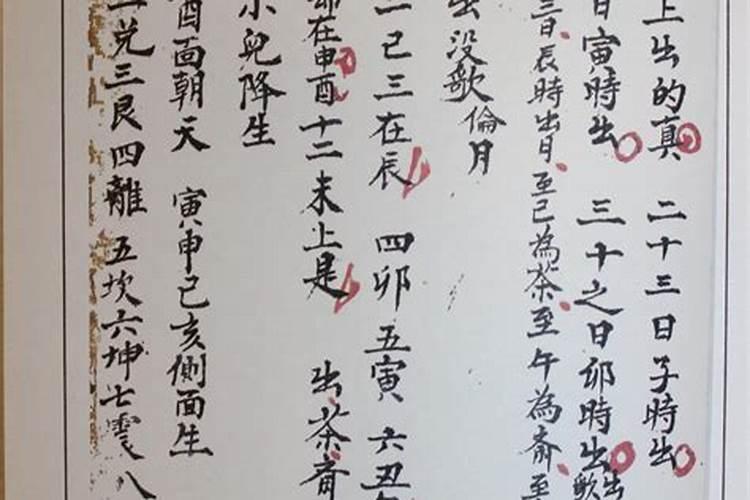 上出的真　二十三日子時出
日寅時出　三十之日卯時出
三日辰時出日至巳為茶至午為斋至
出没歌倫月
二巳三在辰　四卯　五寅　六丑
卯在申酉十二未上是　出茶斋
小兒降生
酉面朝天　寅申己亥側面生
二兑三艮四離　五坎六坤七震八